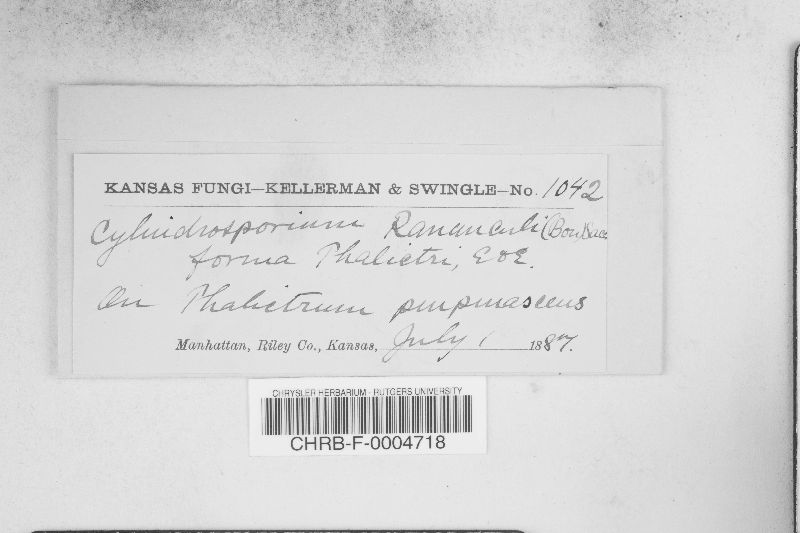 KANSAS FUNGI—KELLERMAN & SWINGLE—No. 1042
Cylindrosporium Ranunculi (Bon) Sacc
forma Thalictri, E & E.
On Thalictrum purpurascens
Manhattan, Riley Co., Kansas, July 1 1887.
CHRYSLER HERBARIUM - RUTGERS UNIVERSITY
CHRB-F-0004718